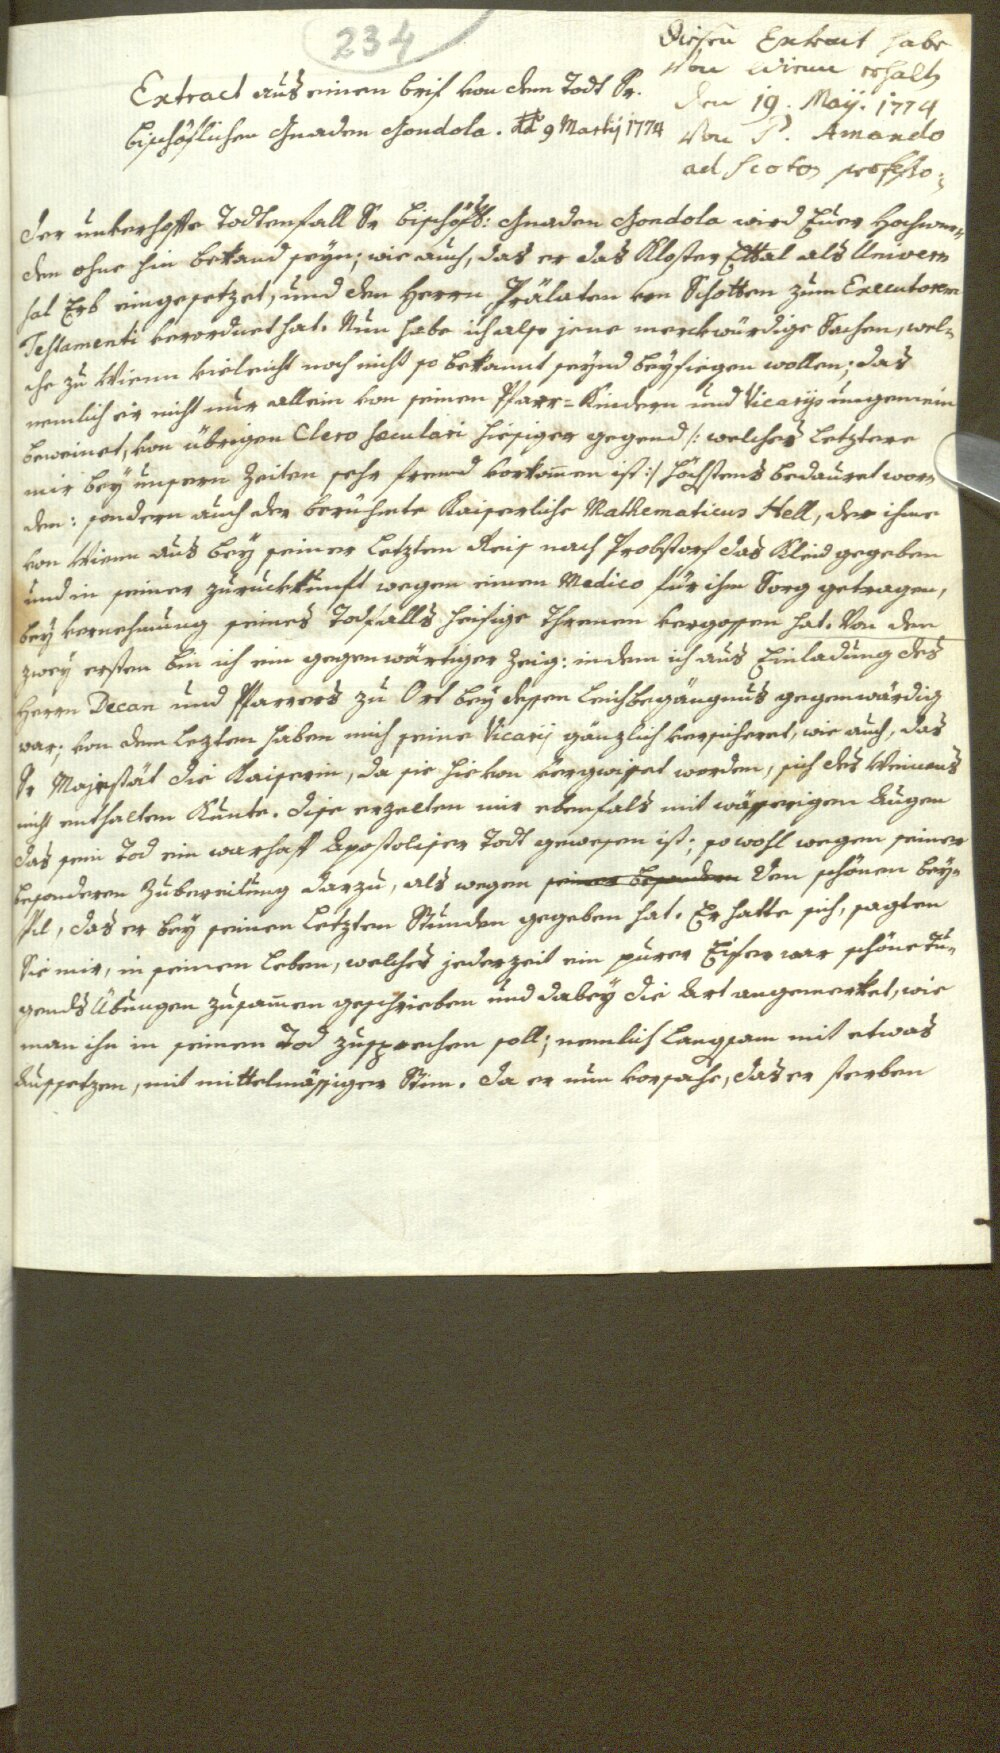 234
Diesen Extract habe
von Wienn erhalt͂
den 19. Maÿ. 1774
von P. Amando
ad Scotos professo:
Extract aus einen brif von dem Todt Sr.
bischöflichen Gnaden Gondola. dd° 9 Martij 1774
Der unverhoffte Todtenfall Sr bischöfl: Gnaden Gondola wird Euer Hochwür=
den ohne hin bekand seyn; wie auch, das er das Kloster Ettal als Univers
hal Erb eingesetzet, und den Herrn Prälaten von Schotten zum Executorem
Testamenti verordnet hat. Nun habe ich also jene merckwürdige Sachen, wel=
che zu Wienn vieleicht noch nicht so bekannt seynd beyfiegen wollen; das
nemlich er nicht nur allein von seinen Pfarr=Kindern und Vicarijs ungemein
beweinet, von übrigen Clero sæculari hiesiger gegend /: welches letztere
mir beÿ unsern Zeiten sehr fremd vorkom̄en ist :/ höchstens bedauret wor=
den: sondern auch der berühmte Kaiserliche Mathematicus Hell, der ihme
von Wienn aus beÿ seiner letzten Reis nach Probstorf das Kleid gegeben
und in seiner zurückkunft wegen einen Medico für ihm Sorg getragen,
beÿ vernehmung seines Todfalls heisige Threnen vergossen hat. Von den
zweÿ ersten bin ich ein gegenwärtiger Zeig: indem ich aus Einladung des
Herrn Decan und Pfarrers zu Ort beÿ dessen Leichbegängnus gegenwärdig
war; von dem letzten haben mich seine Vicarij gänzlich versicheret, wie auch, das
Sr Majestät die Kaiserin, da sie hievon vergwisset worden, sich des Weinens
nicht enthalten kunte. Dise erzelten mir ebenfals mit wässerigen Augen
das sein Tod ein warhaft Apostolischer Todt gewesen ist; so wohl wegen seiner
besonderen Zubereitung darzu, als wegen seiner besondern den schönen beÿ=
spil, das er beÿ seinen letzten Stunden gegeben hat. Er hatte sich, sagten
sie mir, in seinem Leben, welches jederzeit ein purer Eifer war schöne Tu=
gends Übungen zusam̄en geschrieben und dabeÿ die Art angemerket, wie
man ihn in seinem Tod zusprechen soll; nemlich langsam mit etwas
Aussetzen, mit mittelmässiger Stim. Da er nun vorsahe, das er sterben